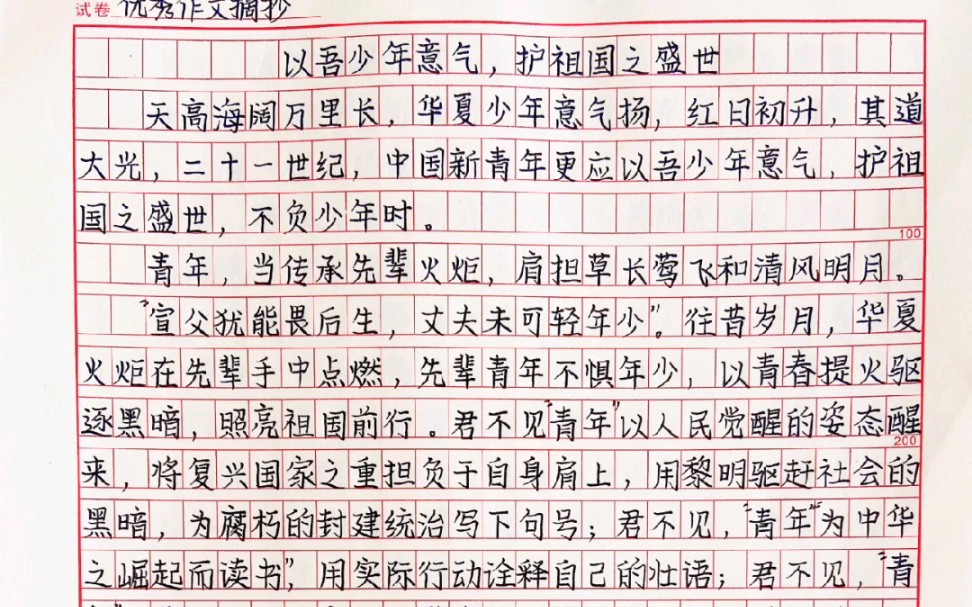 试卷 优秀作文摘抄
以吾少年意气，护祖国之盛世
天高海阔万里长，华夏少年意气扬，红日初升，其道
大光，二十一世纪，中国新青年更应以吾少年意气，护祖
国之盛世，不负少年时。
100
青年，当传承先辈火炬，肩担草长莺飞和清风明月。
“宣父犹能畏后生，丈夫未可轻年少”。往昔岁月，华夏
火炬在先辈手中点燃，先辈青年不惧年少，以青春提火驱
逐黑暗，照亮祖国前行。君不见“青年”以人民党醒的姿态醒
200
来，将复兴国家之重担负于自身肩上，用黎明驱赶社会的
黑暗，为腐朽的封建统治写下句号；君不见，“青年”为中华
之崛起而读书”，用实际行动诠释自己的壮语；君不见，“青